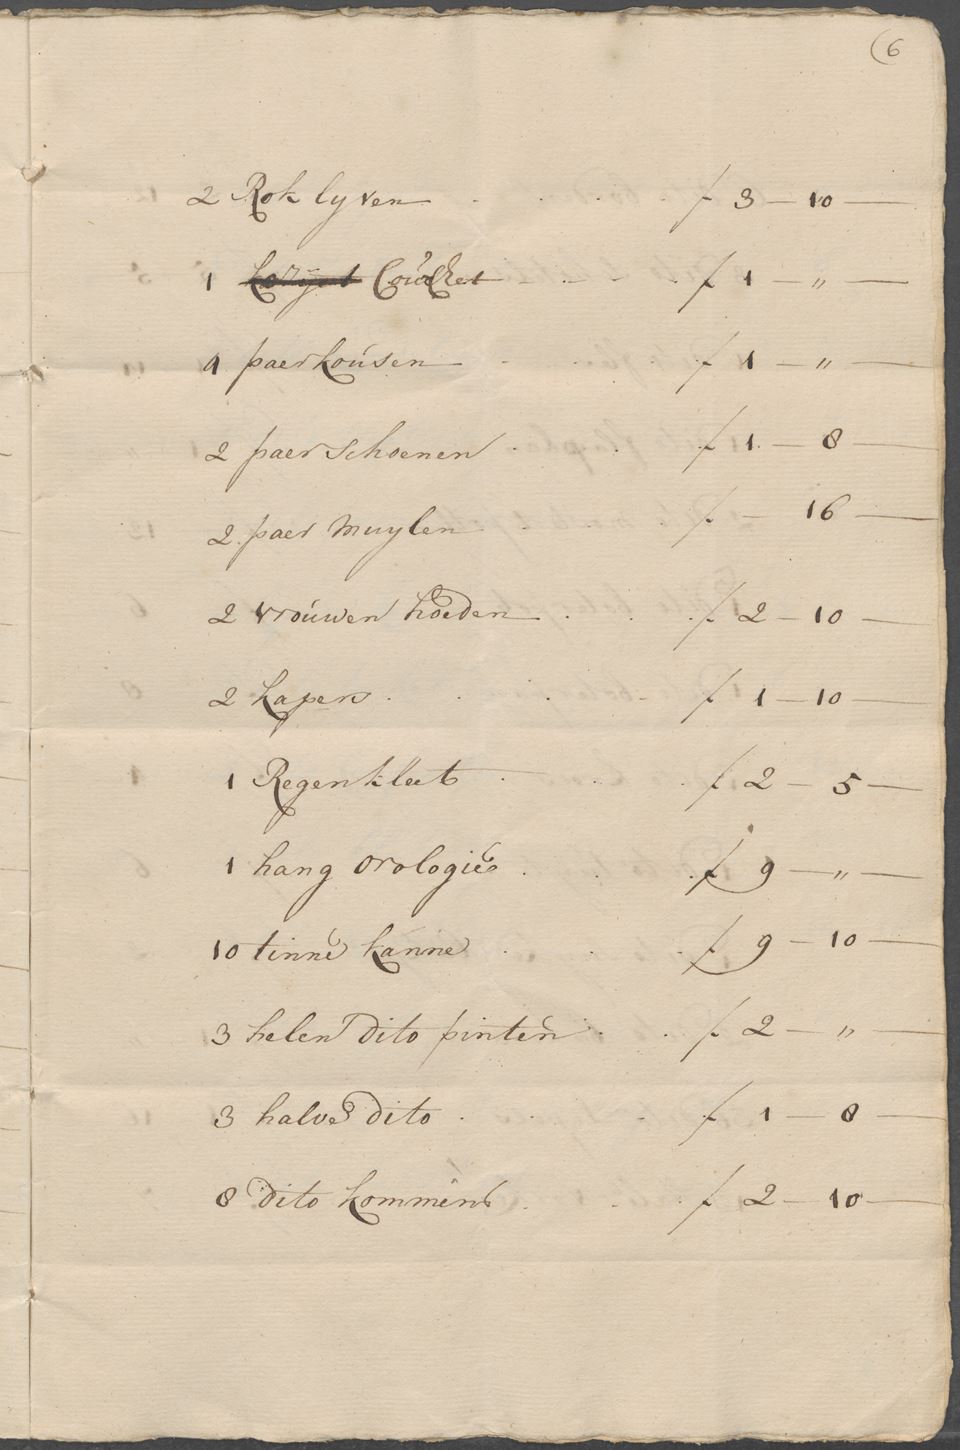 (6
2 Rok lyven . . . ƒ 3 — 10 —
1 Corset . . . ƒ 1 — „ —
4 paer kousen . . . ƒ 1 — „ —
2 paer schoenen . . ƒ 1 — 8 —
2 paer Muylen . . ƒ — 16 —
2 vrouwen hoeden . . . ƒ 2 — 10 —
2 kapers . . . . ƒ 1 — 10 —
1 Regenkleet . . . ƒ 2 — 5 —
1 hang orologie . . . ƒ 9 — „ —
10 tinne kanne . . . ƒ 9 — 10 —
3 helen Dito pinten . . ƒ 2 — „ —
3 halve Dito . . . . ƒ 1 — 8 —
8 Dito kommen . . . ƒ 2 — 10 —